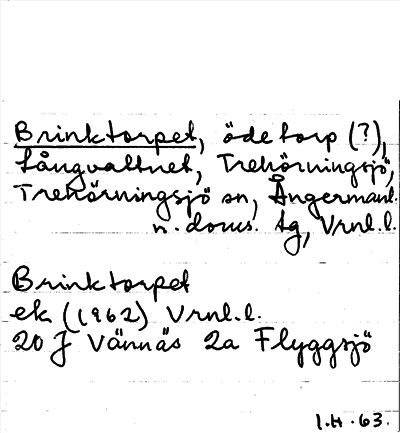 Brinktorpet, öde torp (?),
Långvattnet, Trehörningsjö,
Trehörningsjö sn, Ångermanl.
n. doms. tg, Vrnl.l.
Brinktorpet
ek (1962) Vrnl.l.
20 J Vännäs 2a Flyggsjö
I.H. 63.